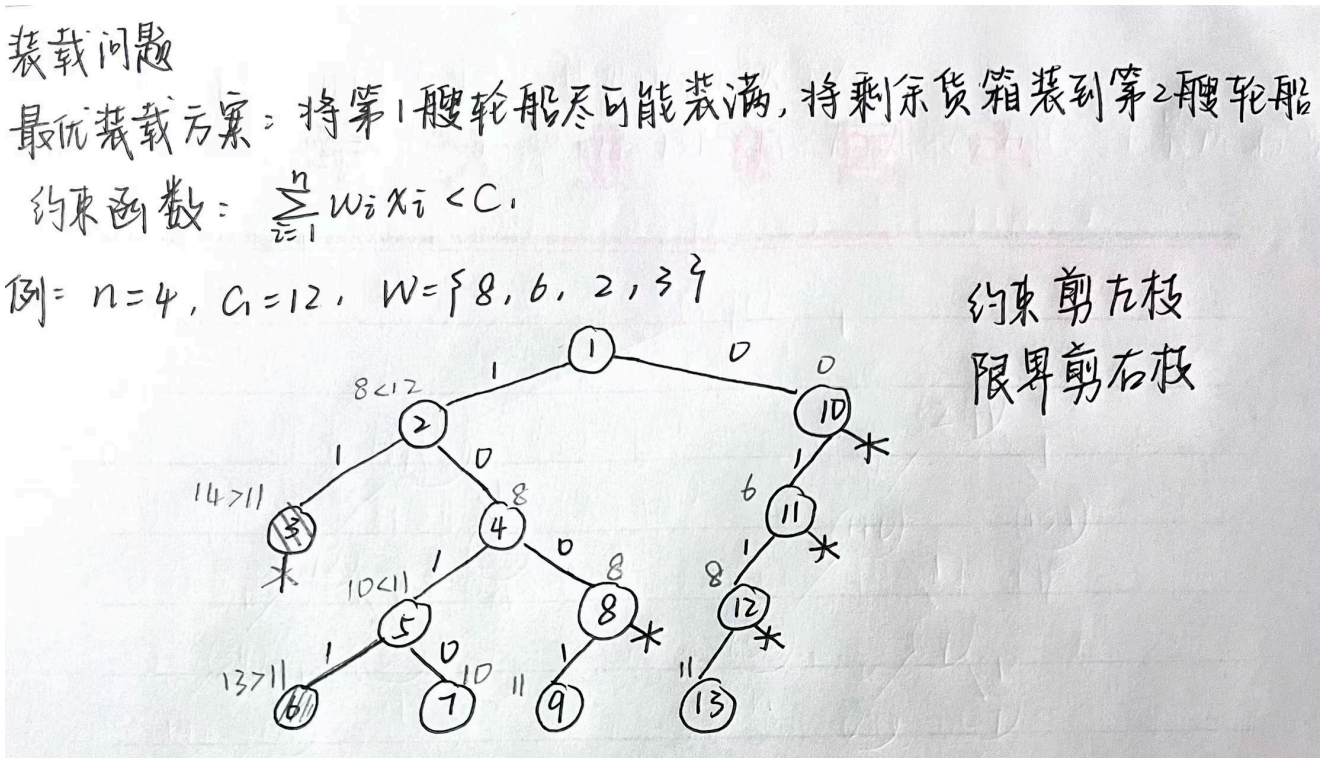 装载问题
最优装载方案：将第1艘轮船尽可能装满，将剩余货箱装到第2艘轮船
约束函数：
n
∑ wixi < C1
i=1
例：n=4, C1=12, W={8, 6, 2, 3}
约束剪左枝
限界剪右枝
1
1 0
8<12 0
2 10
1 0 1 *
14>11 8 6
3 4 11
* 1 0 1 *
10<11 8 8
5 8 12
1 0 1 * *
13>11 10 11 11
6 7 9 13